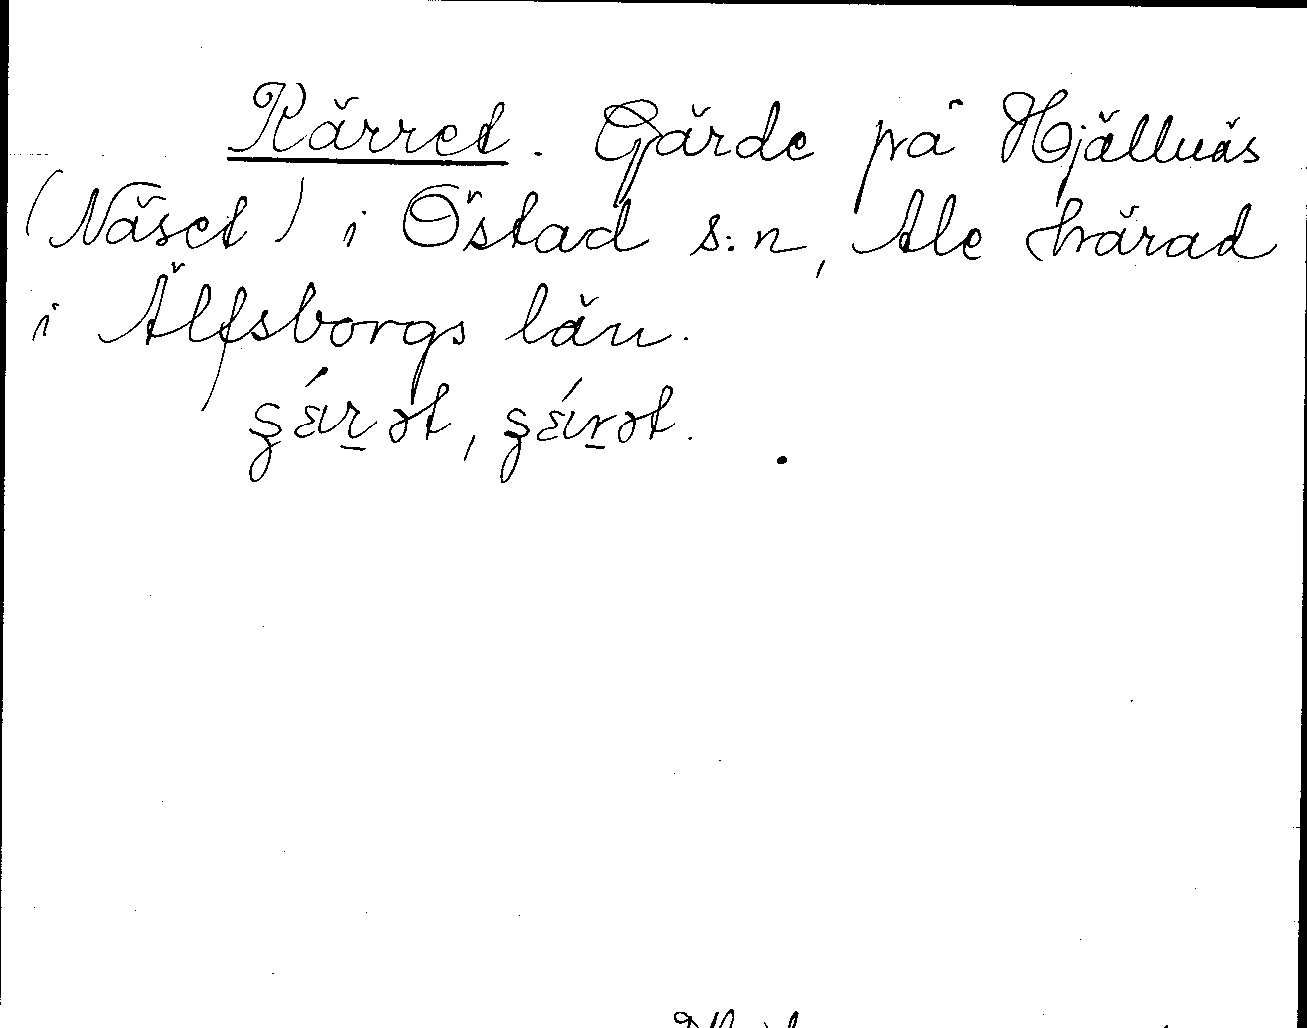 Kärret. Gärde på Hjällnäs
(Näset) i Östad s:n, Ale härad
i Älfsborgs län.